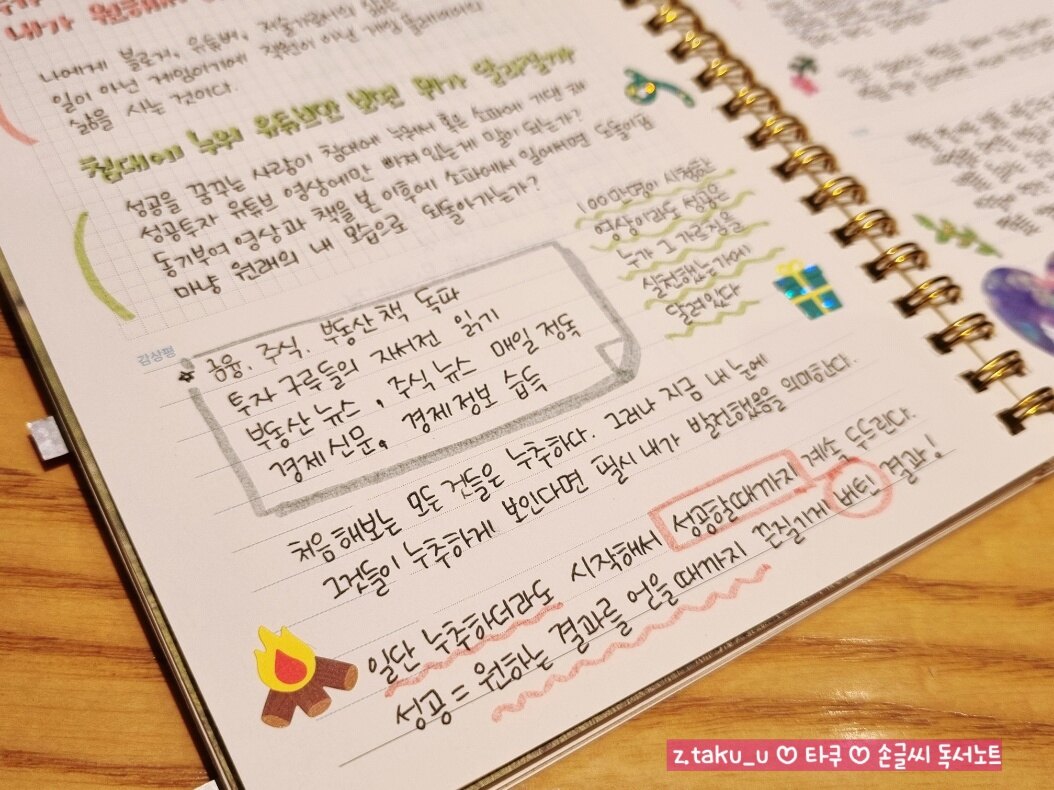 내가 원해서
나에게 블로거, 유튜버, 저술가로서의 삶은
일이 아닌 게임이기에 직원이 아닌 게임 플레이어의
삶을 사는 것이다.
침대에 누워 유튜브만 보면 뭐가 달라질까
성공을 꿈꾸는 사람이 침대에 누워서 혹은 소파에 기댄 채
성공투자 유튜브 영상에만 빠져 있는게 말이 되는가?
동기부여 영상과 책을 본 이후에 소파에서 일어서면 도돌이표
마냥 원래의 내 모습으로 되돌아가는가?
100만명이 시청한
영상이라도 성공은
누가 그 가르침을
실천했는가에
달려있다
김상평
금융, 주식, 부동산 책 독파
투자 구루들의 자서전 읽기
부동산 뉴스, 주식 뉴스 매일 정독
경제 신문, 경제 정보 습득
처음 해보는 모든 것들은 누추하다. 그러나 지금 내 눈에
그것들이 누추하게 보인다면 필시 내가 발전했음을 의미한다.
일단 누추하더라도 시작해서 성공할때까지 계속 두드린다.
성공 = 원하는 결과를 얻을 때까지 끈질기게 버틴 결과!
z.taku_u ♡ 타쿠 ♡ 손글씨 독서노트